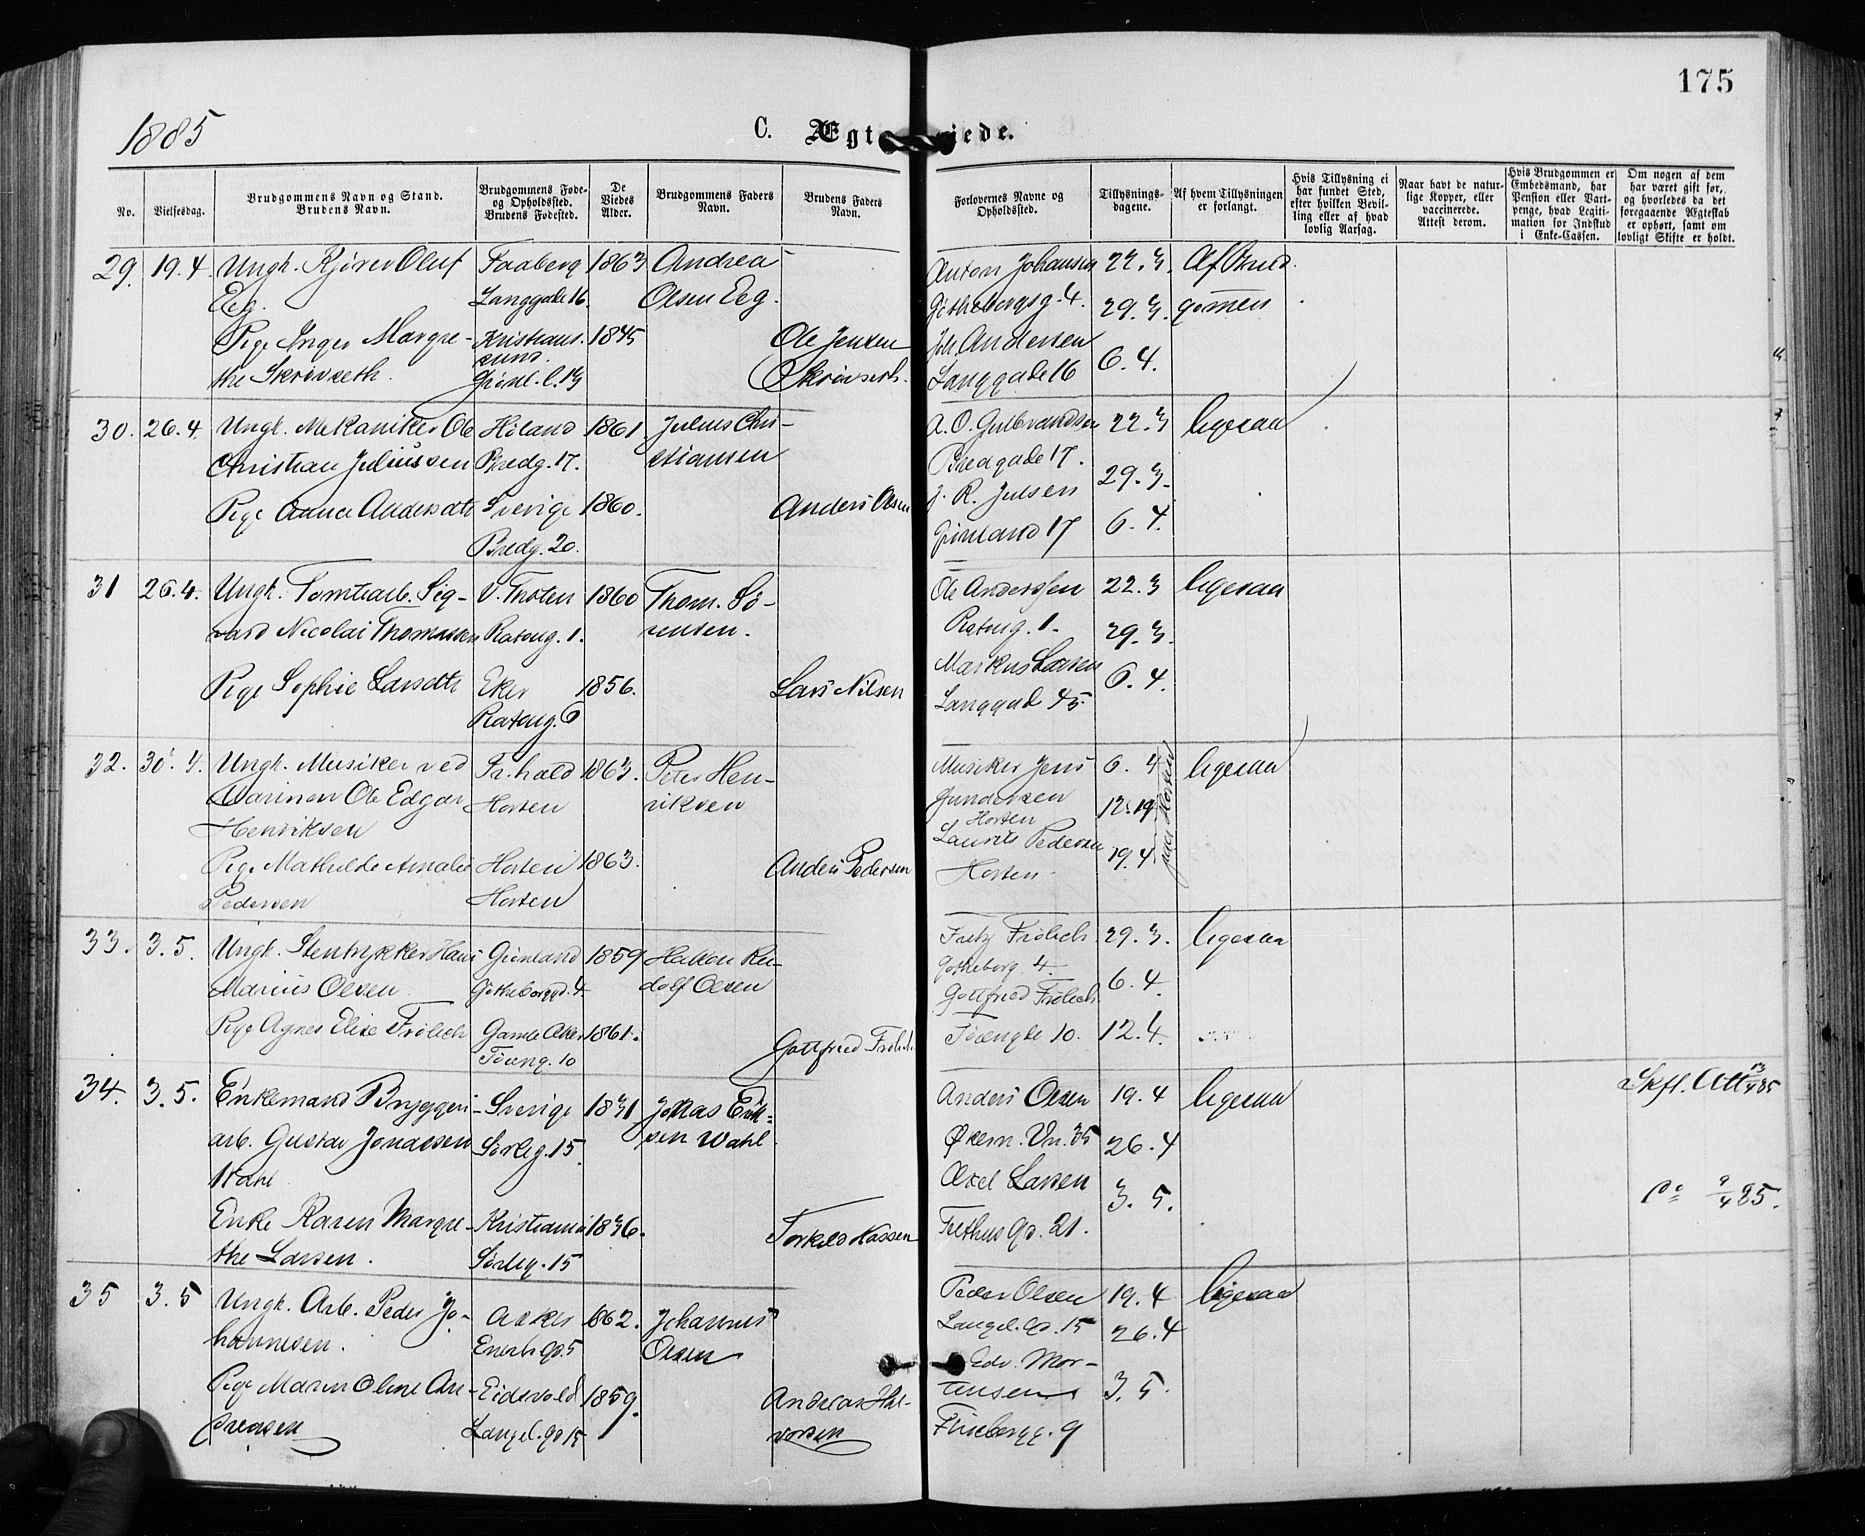 175
1885
C. Ægt
iede.
No.
Vielsesdag.
Brudgommens Navn og Stand.
Brudens Navn.
Brudgommens Føde-
og Opholdssted.
Brudens Fødested.
De
Viedes
Alder.
Brudgommens Faders
Navn.
Brudens Faders
Navn.
Forlovernes Navne og
Opholdssted.
Tillysnings-
dagene.
Af hvem Tillysningen
er forlangt.
Hvis Tillysning ei
har fundet Sted,
efter hvilken Bevil-
ling eller af hvad
lovlig Aarsag.
Naar havt de natur-
lige Kopper, eller
vaccinerede.
Attest derom.
Hvis Brudgommen er
Embedsmand, har
Pension eller Vart-
penge, hvad Legiti-
mation for Indskud
i Enke-Cassen.
Om nogen af dem
har været gift før,
og hvorledes da det
foregaaende Ægteskab
er ophørt, samt om
lovligt Skifte er holdt.
29. 19.4. Ungk. Oluf Faaberg 1863 Andrea Anton Johansen 22.3. Af Brud-
Eeg. Langgade 16. Olsen Eeg. Gøtheborgsg. 4. 29.3. gomen
Pige Inger Margre- Kristians- 1845 Ole Jensen Joh. Andersen
sund.
the Skrövseth. Grønl. l. 13 Skrövseth. Langgade 16 6.4.
30. 26.4. Ungk. Mekaniker Ole Høland 1861 Julius Chri- A. O. Gulbrandsen 22.3 ligesaa
Christian Juliussen Bredg. 17. stiansen Bredgade 17. 29.3.
Pige Anna Andersdtr Sverige 1860. Anders Olsen J. R. Julsen
Bredg. 20. Grønland 17 6.4.
31 26.4. Ungk. Tomtearb. Sig- V. Thoten 1860 Thom. Sö- Ole Anderssen 22.3 ligesaa
vard Nicolai Thomassen Ratoug. 1. rensen. Ratoug. 1. 29.3.
Pige Sophie Larsdtr Eker 1856. Lars Nilsen Markus Larsen 6.4.
Ratoug. 6 Langgad 45.
32. 30.4. Ungk. Musiker ved Fr.hald 1863. Peter Hen- Musiker Jens 6.4 ligesaa
Marinen Ole Edgar Horten riksen Gundersen 12.19
Henriksen Horten
Pige Mathilde Amalie Horten 1863. Anders Pedersen Laurits Pedersen 19.4
Pedersen Horten Horten
paa Horten
33. 3.5. Ungk. Stentrykker Hans Grønland 1859 Ru- Fritz Frölich. 29.3. ligesaa
Marius Olsen Götheborggd. 4. dolf Olsen Gotheborg. 4. 6.4.
Pige Agnes Elise Frölich Gamle Aker 1861. Gottfried Frölich Gottfried Frölich.
Töieng. 10 Töiengt 10. 12.4.
34. 3.5. Enkemand Bryggeri- Sverige 1831 Jonas Erik- Anders Olsen 19.4 ligesaa Skfl. Att 13/4 85
arb. Gustav Jonassen Sörlig. 15. sen Wahl Økern. Vn. 35 26.4
Wahl Axel Larsen 3.5. Do 9/4 85.
Enke Karen Margre- Kristiania 1836. Torkild Hassen Felthus gd. 21.
the Larsen. Sörlig. 15
35 3.5 Ungk. Arb. Peder Jo- Asker 1862. Johannes Peder Olsen 19.4 ligesaa
hannesen. Enerh. gd. 5 Olsen Langel. gd. 15 26.4
Pige Maren Oline An- Eidsvold 1859. Andreas Hal- Edv. Mor-
dreasen Langel. gd 15 vorsen tensen 3.5.
Flisebergg. 9